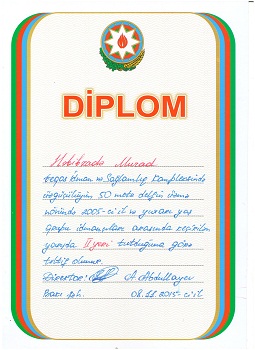 DİPLOM
Hebibzadə Murad
İdman və Sağlamlıq Kompleksində
üzgüçülüyün 50 metr delfin üsulu
növündə 2005-ci il və yuxarı yaş
qrupu idmançıları arasında keçirilən
yarışda II yeri tutduğuna görə
təltif olunur.
Direktor: A. Abdullayev
Bakı şəh. 2015-ci il